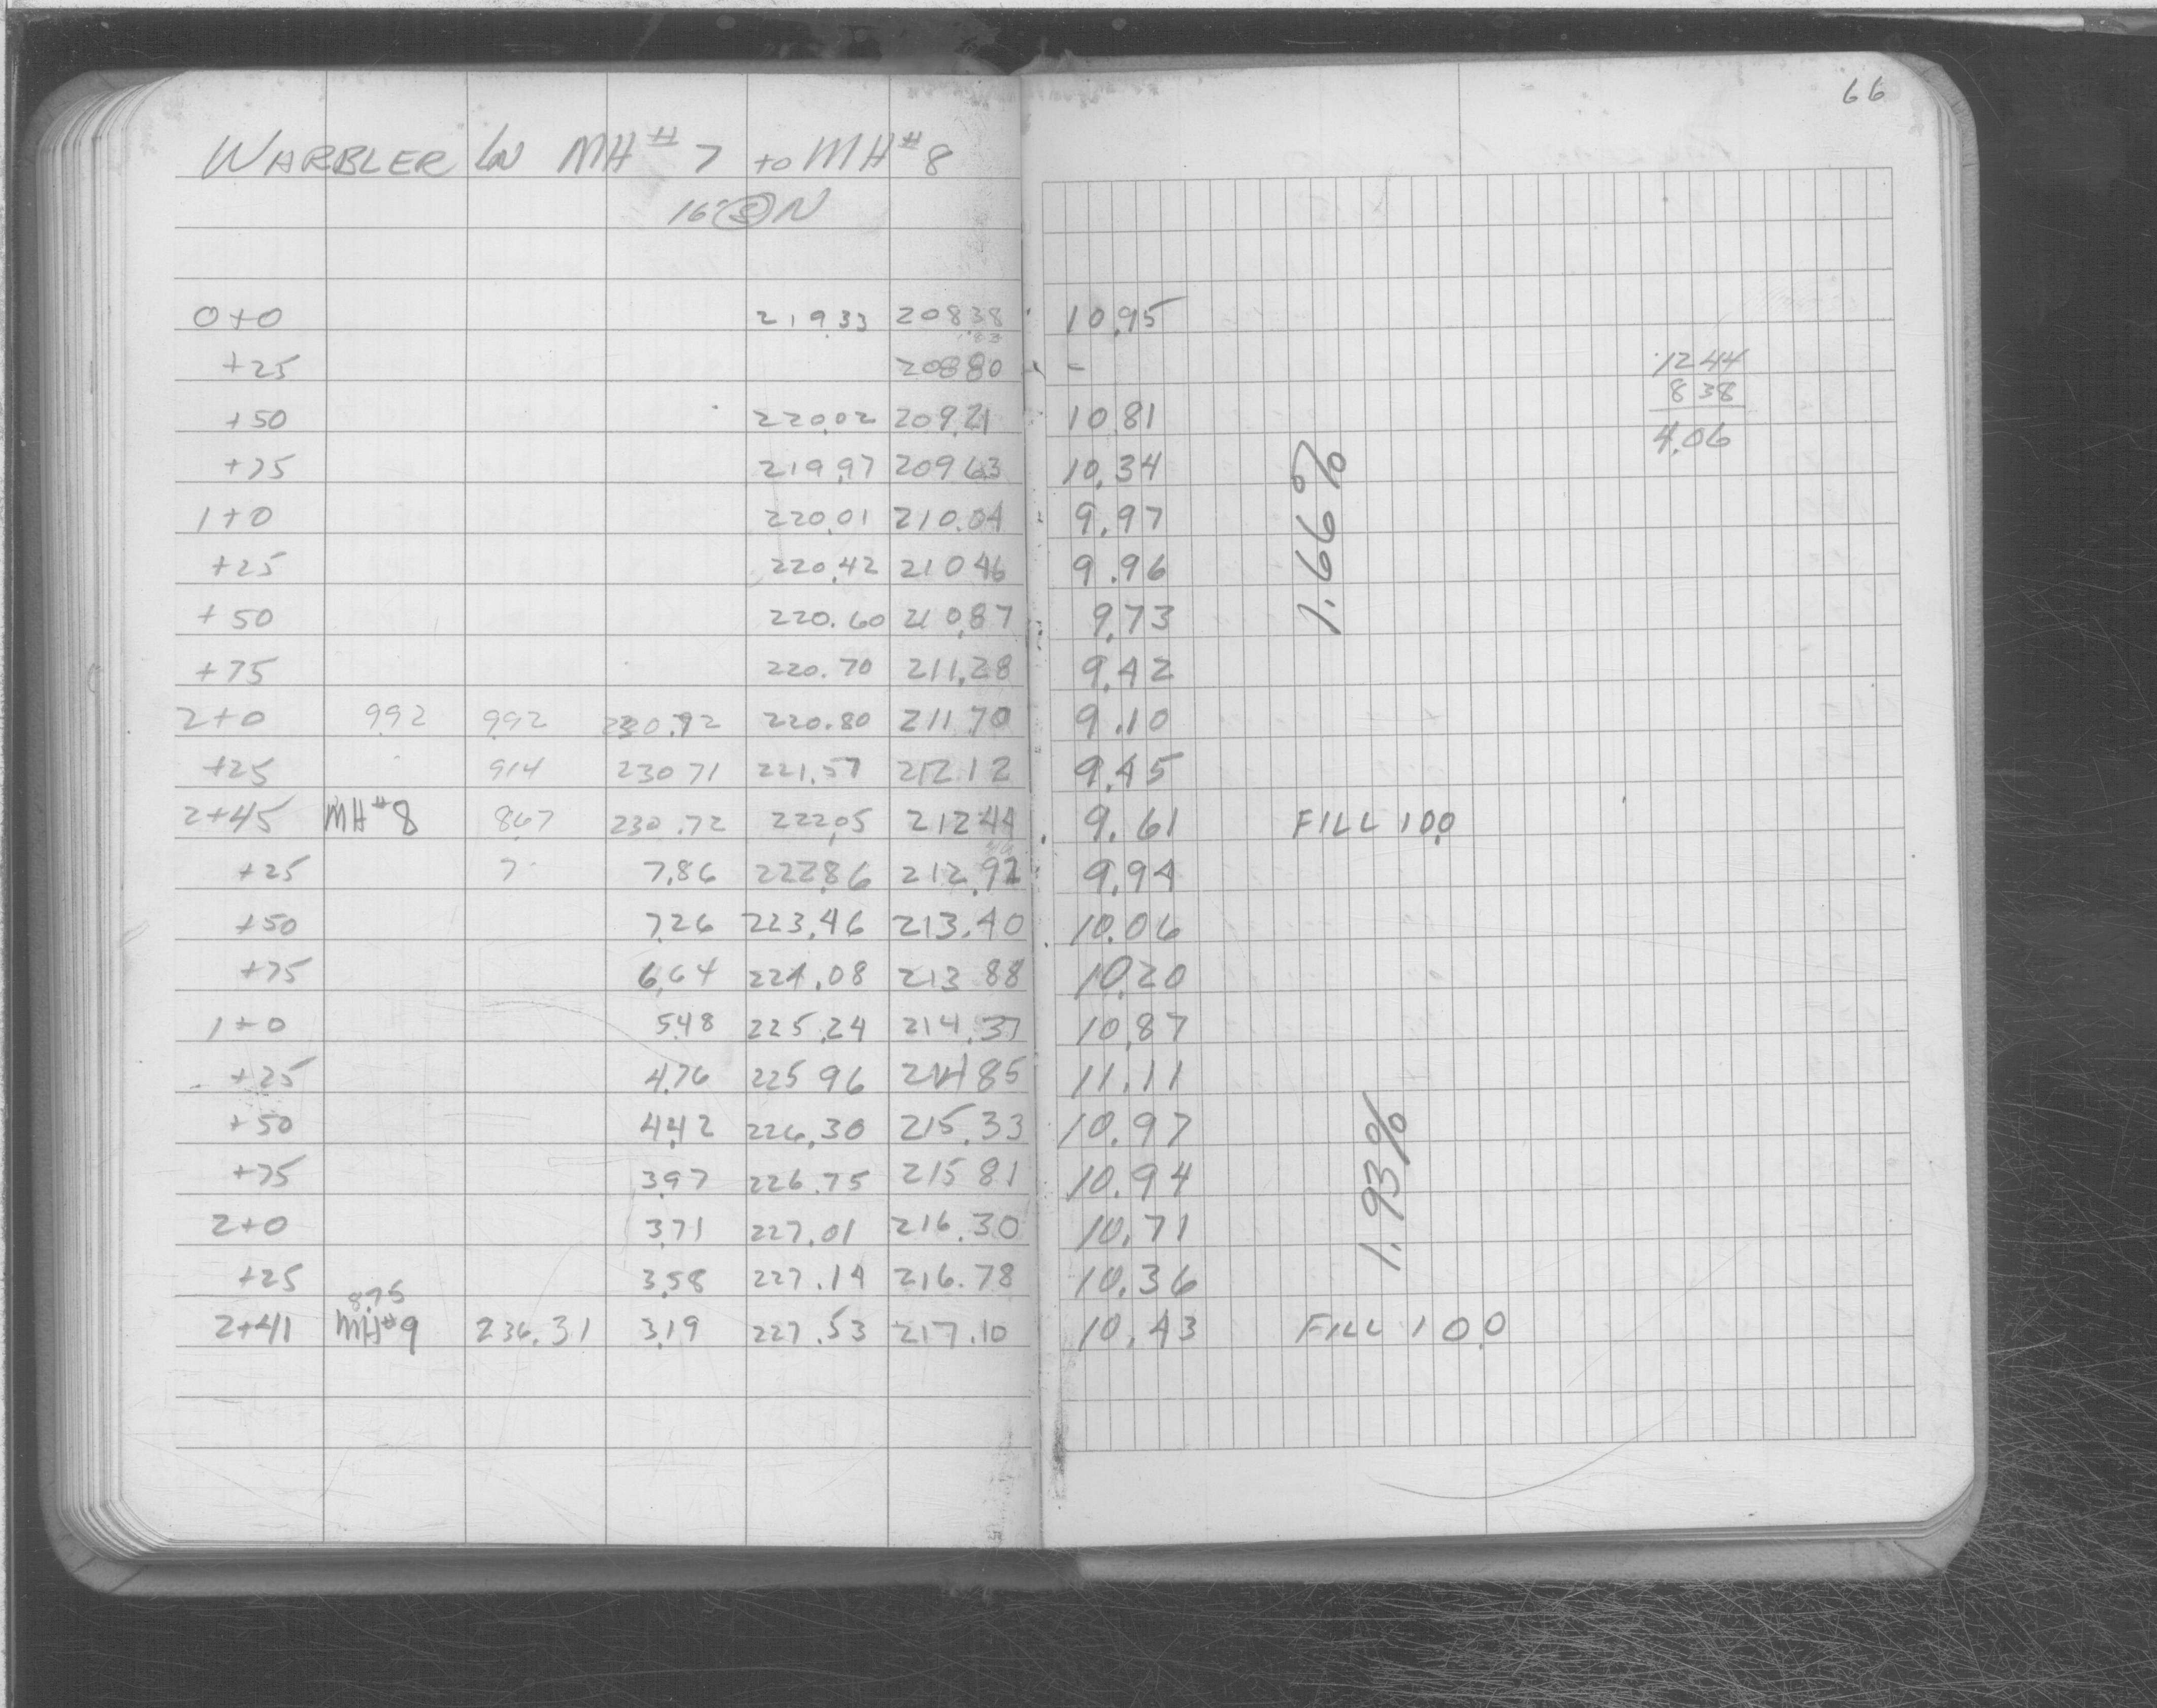 66
WARBLER LN MH#7 to MH#8
16' @ N
0+0 219.33 208.38 10.95
+25 208.80 -
1244
838
4.06
+50 220.02 209.21 10.81
+75 219.97 209.63 10.34
1+0 220.01 210.04 9.97
1.66%
+25 220.42 210.46 9.96
+50 220.60 210.87 9.73
+75 220.70 211.28 9.42
2+0 992 992 230.72 220.80 211.70 9.10
+25 914 230 71 221.57 212.12 9.45
2+45 MH#8 8.67 230.72 222.05 212.44 9.61 FILL 10.0
+25 7 7.86 222.86 212.92 9.94
+50 7.26 223.46 213.40 10.06
+75 6.64 224.08 213.88 10.20
1+0 5.48 225.24 214.37 10.87
+25 4.76 225 96 214 85 11.11
+50 4.42 226.30 215.33 10.97
1.93%
+75 3.97 226.75 215 81 10.94
2+0 3.71 227.01 216.30 10.71
+25 3.58 227.14 216.78 10.36
8.75
2+41 MH#9 236.31 3.19 227.53 217.10 10.43 FILL 10.0